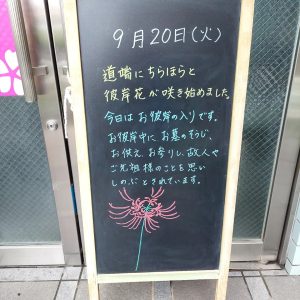 9月20日(火)
道端にちらほらと
彼岸花が咲き始めました。
今日はお彼岸の入りです。
お彼岸中にお墓のそうじ、
お供え、お参りし、故人や
ご先祖様のことを思い
しのぶとされています。